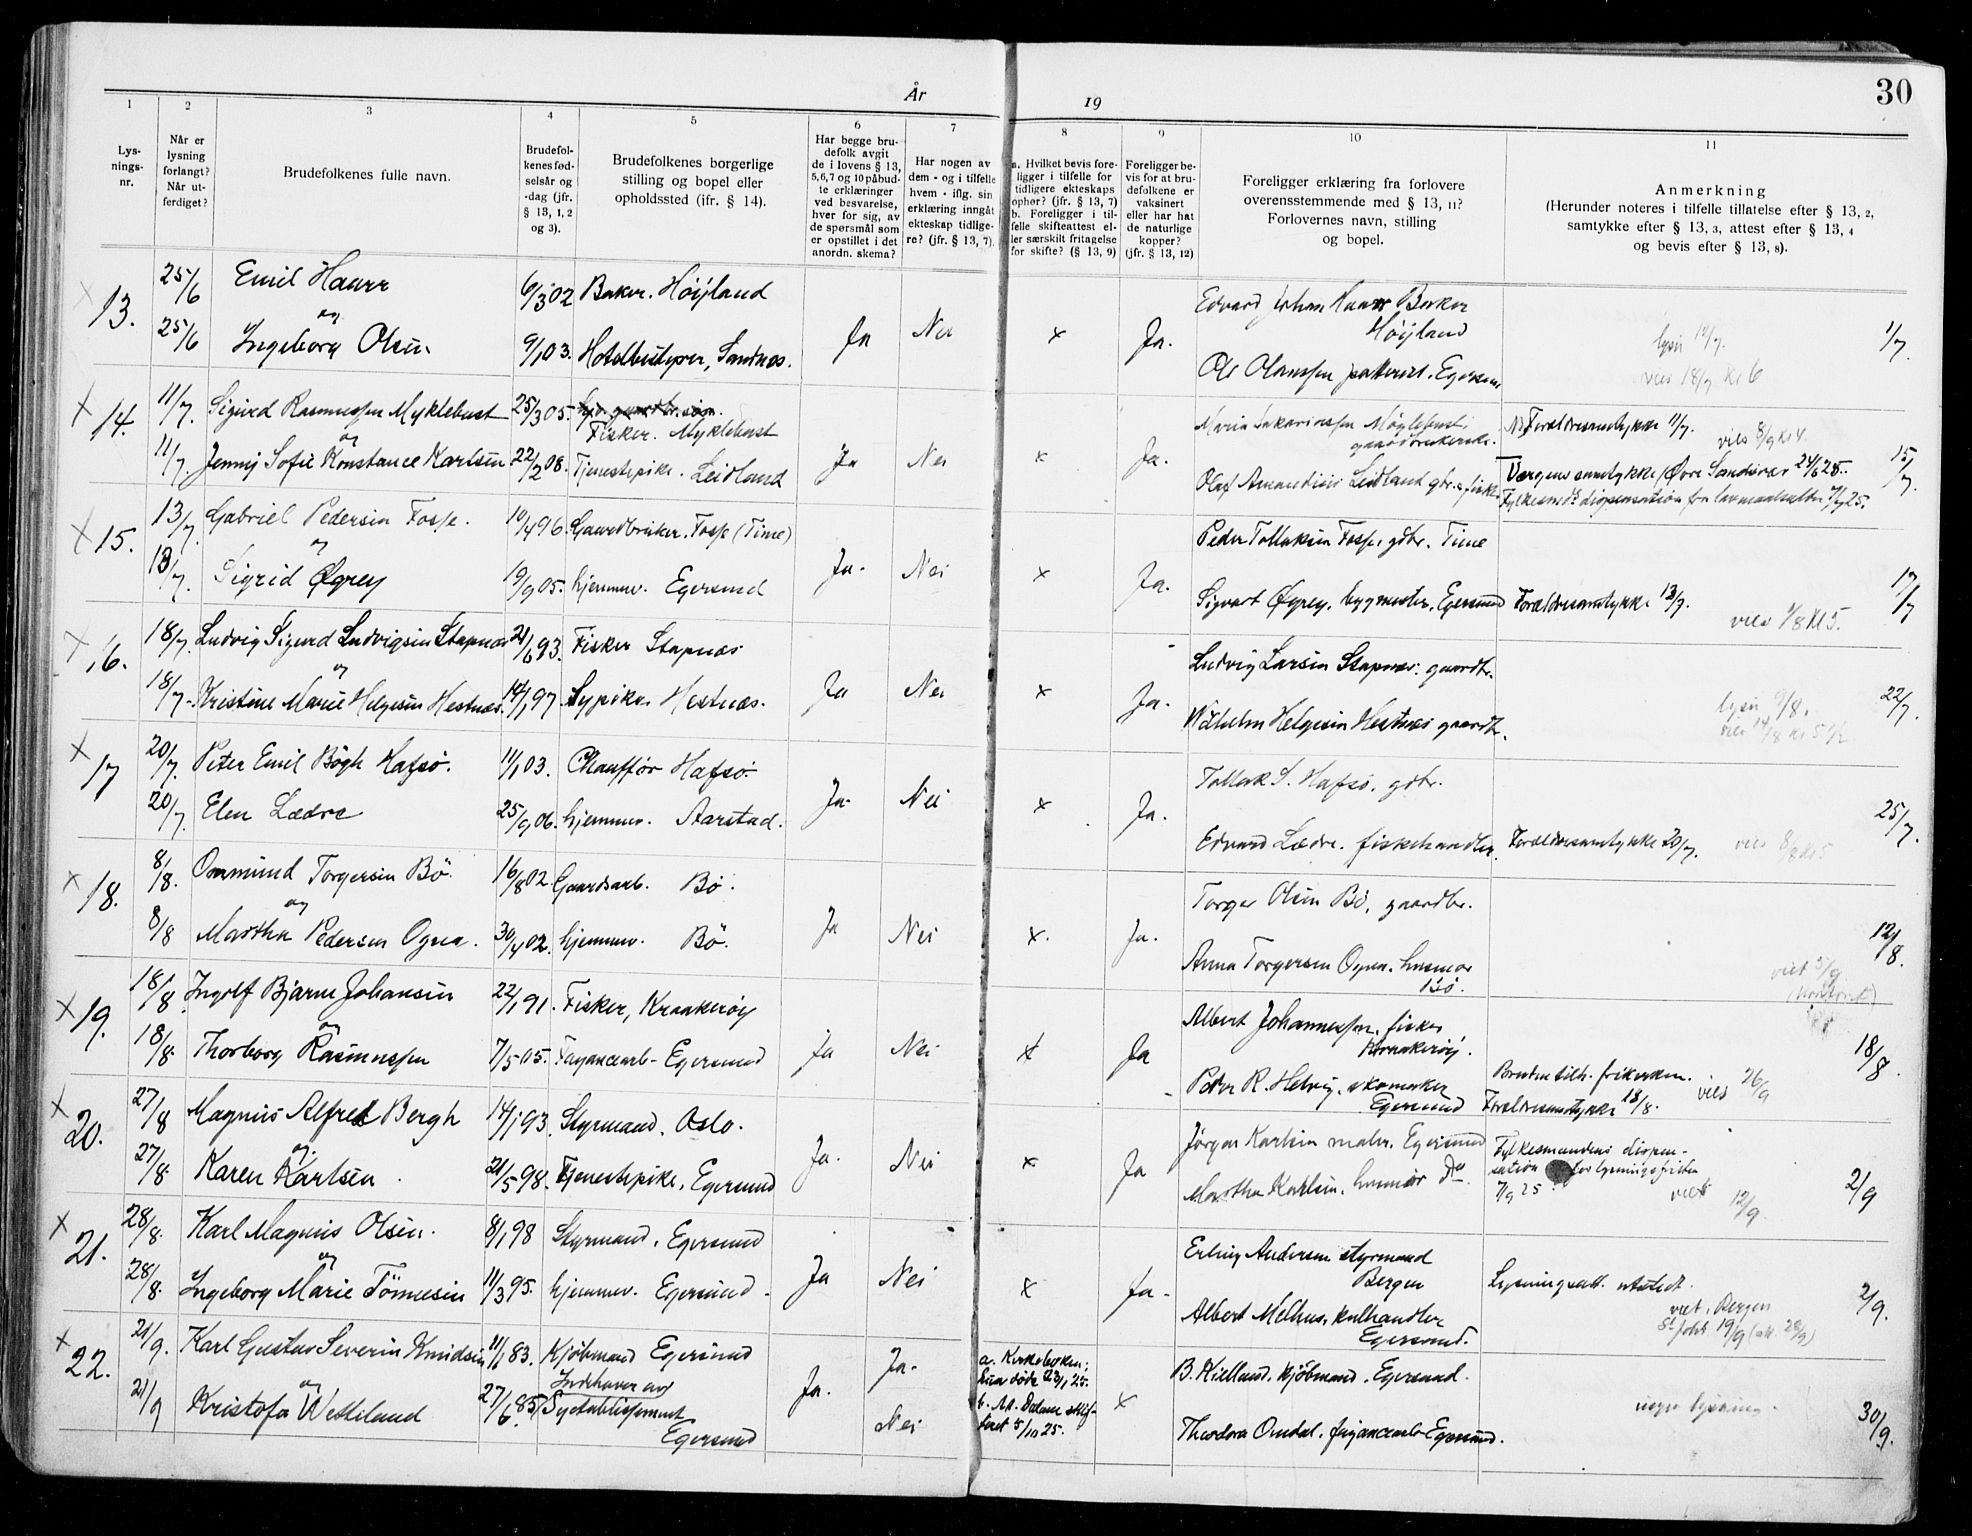 År 19
30
1
2
3
4
5
6
7
8
9
10
11
Lys-
nings-
nr.
Når er
lysning
forlangt?
Når ut-
ferdiget?
Brudefolkenes fulle navn.
Brudefol-
kenes fød-
selsår og
-dag (jfr.
§ 13, 1, 2
og 3).
Brudefolkenes borgerlige
stilling og bopel eller
opholdssted (ifr. § 14).
Har begge bru-
defolk avgit
de i lovens § 13,
5,6,7 og 10 påbud-
te erklæringer
ved besvarelse,
hver for sig, av
de spørsmål som
er opstillet i det
anordn. skema?
Har nogen av
dem - og i tilfelle
hvem - iflg. sin
erklæring inngåt
ekteskap tidlige-
re? (jfr. § 13, 7).
a. Hvilket bevis fore-
ligger i tilfelle for
tidligere ekteskaps
ophør? (jfr. § 13, 7)
b. Foreligger i til-
felle skifteattest el-
ler særskilt fritagelse
for skifte? (§ 13, 9)
Foreligger be-
vis for at bru-
defolkene er
vaksinert
eller har hat
de naturlige
kopper?
(jfr. § 13, 12)
Foreligger erklæring fra forlovere
overensstemmende med § 13, 11?
Forlovernes navn, stilling
og bopel.
Anmerkning
(Herunder noteres i tilfelle tillatelse efter § 13, 2,
samtykke efter § 13, 3, attest efter § 13, 4
og bevis efter § 13, 8).
x 13. 25/6 Emil Haarr 6/3 02 Baker. Höyland
og
25/6 Ingeborg Olsen 9/1 03. Sandnes. Ja Nei x Ja.
Edvard Johan Haarr Baker
Höyland
Egersund
lyst 12/7.
vies 18/7 kl 6
1/7.
x 14. 11/7. Sigurd Rasmussen Myklebust 25/3 05.
Fisker. Myklebust
og
11/7. Jenny Sofie Konstance Karlsen 22/2 08. Tjenestepike. Leidland Ja Nei x Ja.
gaardbrukerske.
Olaf Leidland gbr. & fisker
Forældresamtykke 11/7.
vies 8/9 kl 4.
Værgens samtykke 24/6 25.
Fylkesmds dispensation fra
15/7.
x 15. 13/7. Gabriel Pedersen Fosse. 10/4 96 Gaardbruker. Fosse (Time)
og
13/7. Sigrid Øgrey 19/9 05. hjemmev. Egersund Ja. Nei x Ja.
Peder Tollaksen Fosse, gdbr. Time
Sigvart Øgrey, bygmester, Egersund Forældresamtykke 13/7.
vies 1/8 kl 5.
17/7
x 16. 18/7. Ludvig Sigurd Ludvigsen Stapnæs 21/6 93. Fisker Stapnæs
og
18/7. Kristine Marie Helgesen Hestnæs. 14/1 97. Sypike. Hestnæs. Ja Nei x Ja.
Ludvig Larsen Stapnæs. gaardbr.
Wilhelm Helgesen Hestnæs gaardbr.
lyst 9/8.
vies 14/8 kl 5 1/2
22/7.
x 17 20/7. Peter Emil Bögh Hafsö. 11/1 03. Chauffør Hafsö.
20/7. Elen Lædre 25/9 06. hjemmev. Aarstad. Ja. Nei x Ja.
Tollak S. Hafsö, gdbr.
Edvard Lædre. fiskehandler. Forældresamtykke 20/7.
vies 8/8 kl 5
25/7.
x 18. 8/8. Ommund Torgersen Bö. 16/8 02. Gaardsarb. Bö.
og
8/8 Martha Pedersen Ogna. 30/4 02. hjemmev. Bö. Ja Nei x. Ja.
Torger Olsen Bö, gaardbr.
Anna Torgersen Ogna. husmor
Bö.
viet 5/9
12/8.
x 19. 18/8. Ingolf Bjarne Johansen 22/1 91. Fisker, Kraakeröy
og
18/8. Thorborg Rasmussen 7/5 05. Fayancearb. Egersund Ja Nei x Ja
Albert Johannessen. fisker
Kraakeröy.
Peder R. Helvig, skomaker
Egersund
Bruden tilh. frikirken.
Forældresamtykke 18/8.
vies 26/9
18/8
x 20. 27/8 Magnus Alfred Bergh 14/1 93. Styrmand. Oslo.
og
27/8. Karen Karlsen 21/5 98. Tjenestepike, Egersund Ja. Nei x Ja
Jörgen Karlsen maler, Egersund
Martha Karlsen, husmor Do.
Fylkesmandens dispen-
sation for lysningsfristen
7/9 25.
viet 12/9.
2/9
x 21. 28/8. Karl Magnus Olsen. 8/1 98 Styrmand. Egersund
og
28/8. Ingeborg Marie Tönnesen 11/3 95. hjemmev. Egersund. Ja Nei x Ja.
Erling Andersen styrmand
Bergen
Albert Melhus, kulhandler
Egersund.
Lysningsatt. utstedt.
viet i Bergen
St. Joh. 19/9 (att. 28/9)
2/9.
x 22. 21/9. Karl Gustav Severin Knudsen 11/1 83. Kjöbmand Egersund
og
21/9 Kristofa Wetteland 27/6. 85 Indehaver av
Syetablissement
Egersund
Ja. Ja.
Nei
a. Kirkeboken:
hun döde 23/1 25.
b. Att. Dalane skif-
teret 5/10 25.
x
B. Kielland, kjöbmand. Egersund.
Theodora Omdal, fayancearb. Egersund.
ingen lysning.
30/9.